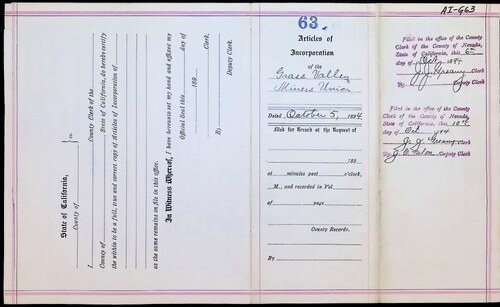 AI-G63
State of California,
County of
ss.
I, County Clerk of the
County of , State of California, do hereby certify
the within to be a full, true and correct copy of Articles of Incorporation of
as the same remains on file in this office.
In Witness Whereof, I have hereunto set my hand and affixed my
Official Seal this day of
189
Clerk.
By
Deputy Clerk.
63.
Articles of
Incorporation
of the
Grass Valley
Miners Union
Dated October 5, 1894.
Filed for Record at the Request of
189
at minutes past o'clock,
M., and recorded in Vol.
of page
County Records.
By
Filed in the office of the County
Clerk of the County of Nevada,
State of California, this 6th
day of Oct. 1894
J. J. Greany Clerk
By Deputy Clerk
Filed in the office of the County
Clerk of the County of Nevada,
State of California, this 10th
day of Oct 1894
J. J. Greany Clerk
By Deputy Clerk